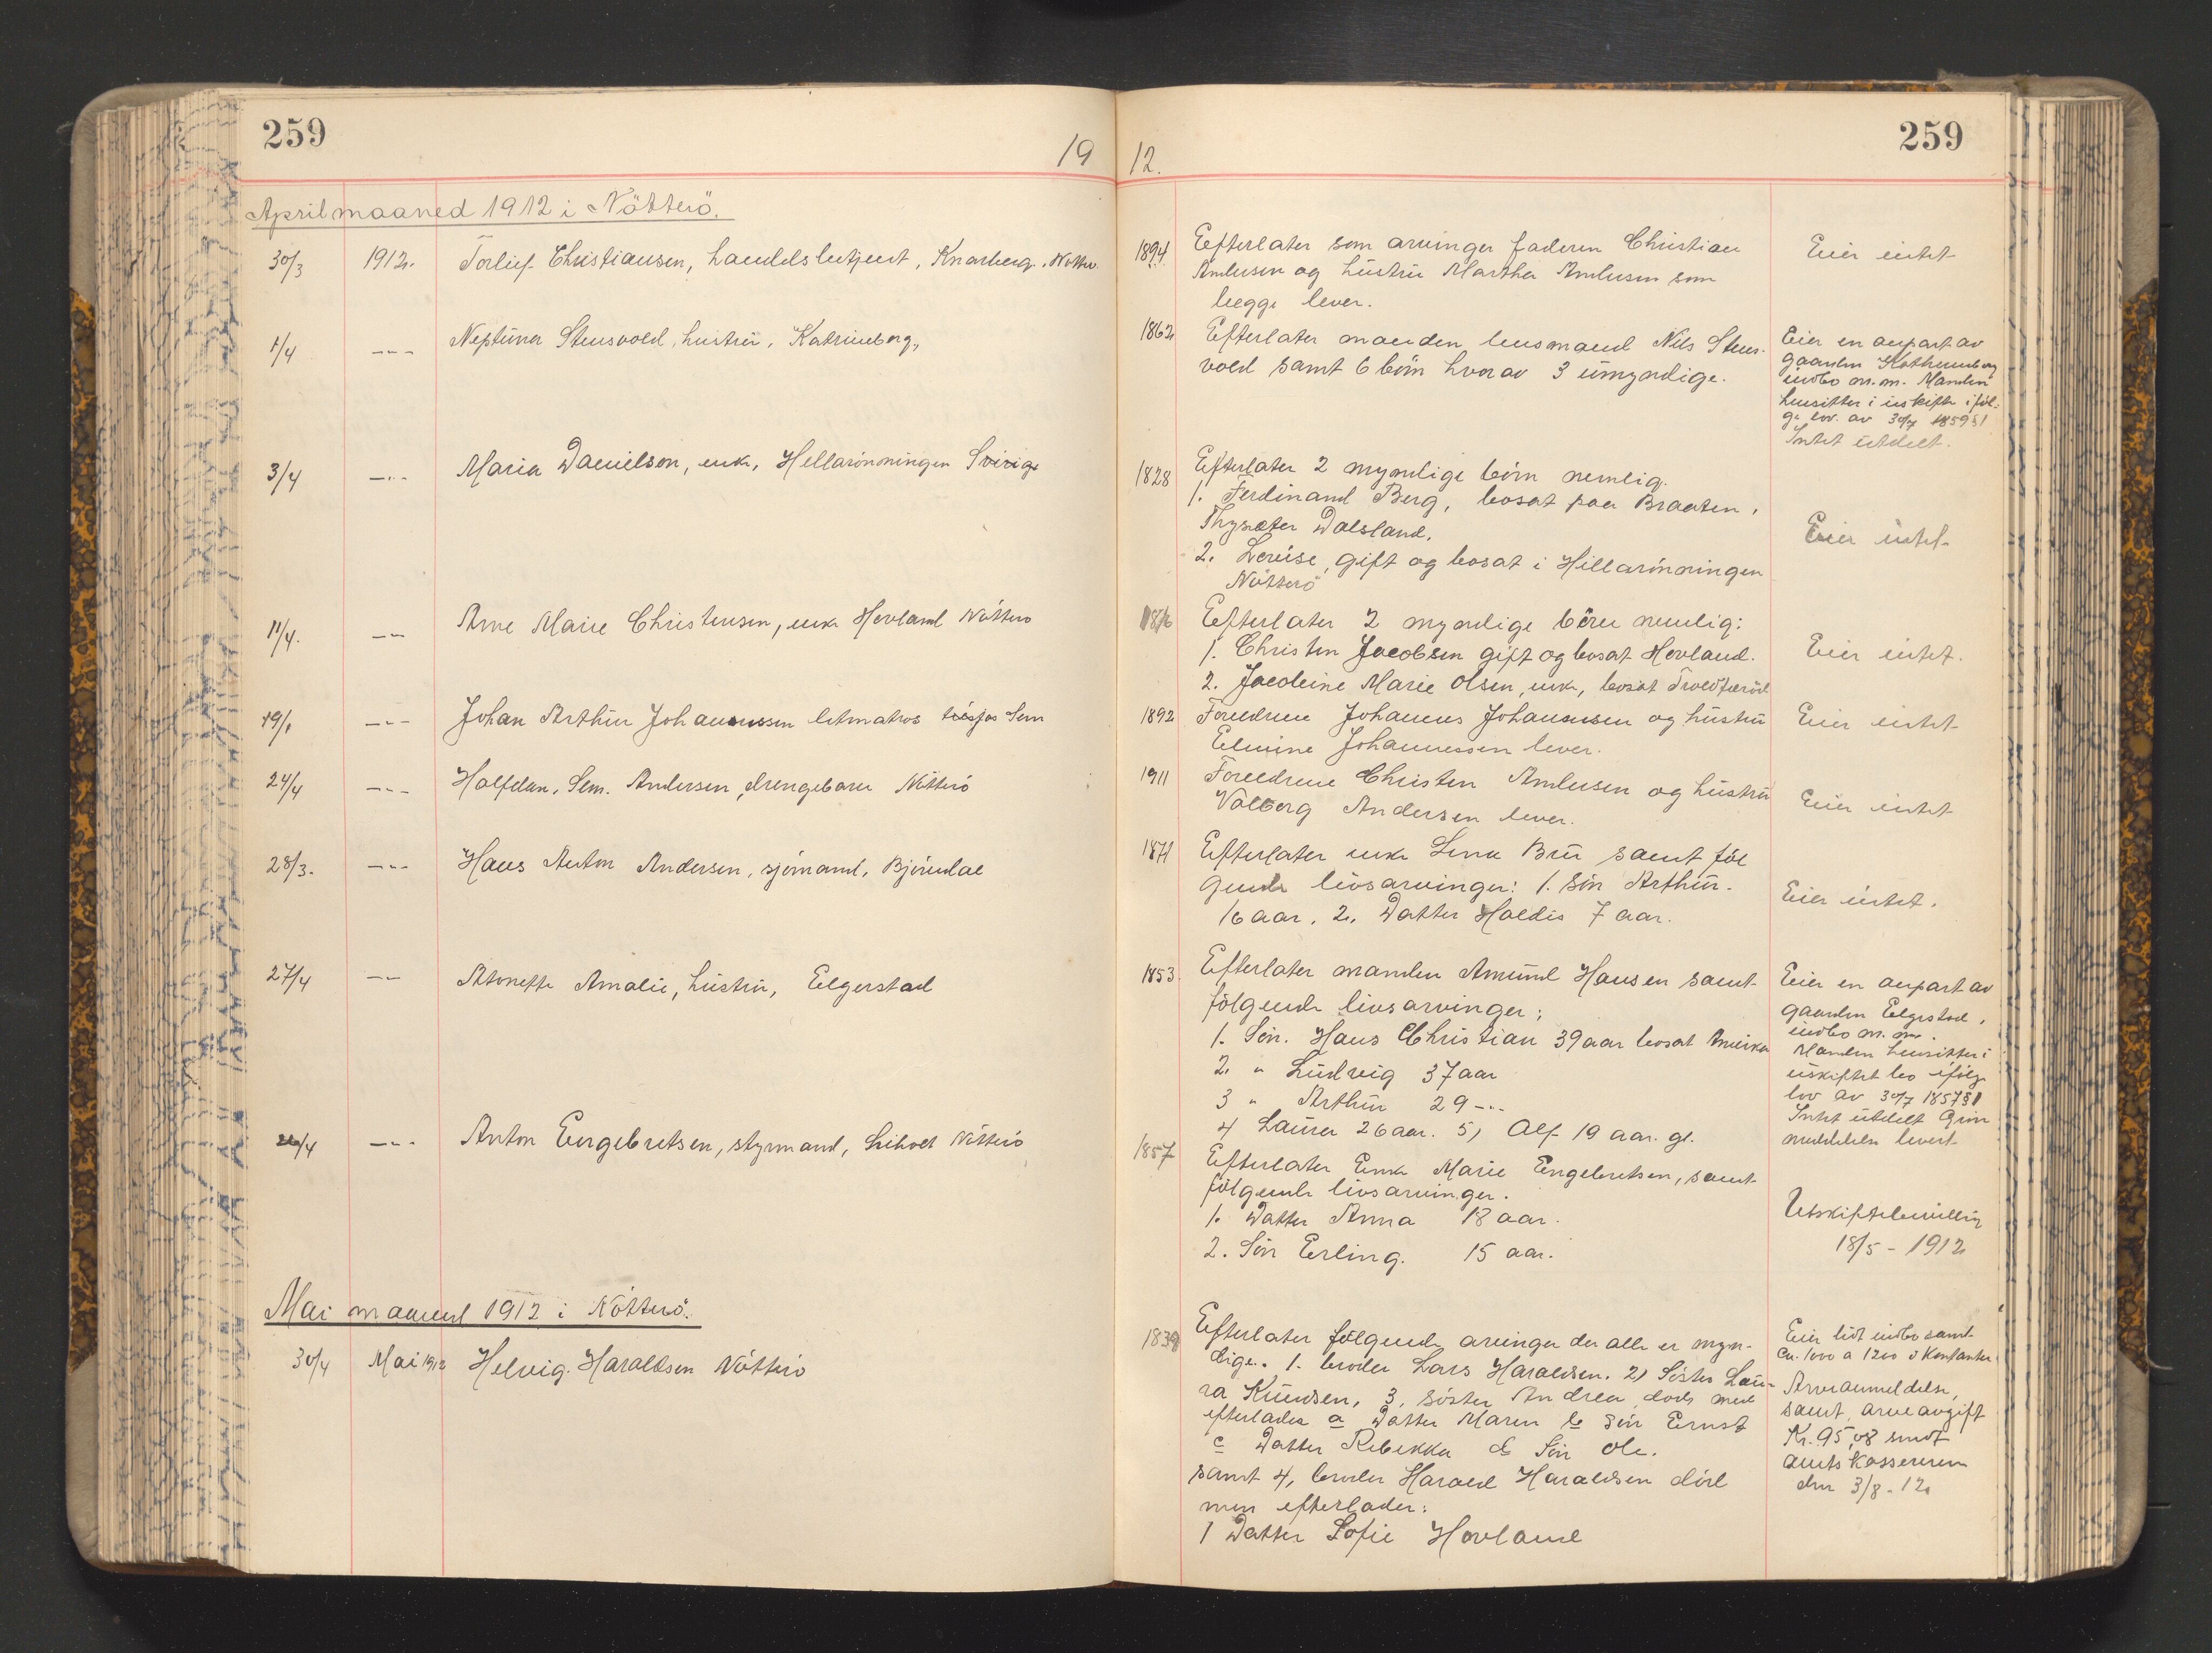 259
19
12.
259
Aprilmaaned 1912 i Nötterö.
30/3 1912. Torleif Christiansen, handelsbetjent, Knarberg. Nötterö.
1894 Efterlater som arvinger faderen Christian
Andersen og hüstrü Martha Andersen som
begge lever.
Eier intet
1/4 -"- Neptüna Stensvold, hüstrü, Katrineborg,
1862 Efterlater manden lensmand Nils Stens-
vold samt 6 börn hvorav 3 ümyndige.
Eier en anpart av
gaarden Kathrineborg
indbo m.m. Manden
hensitter i üskifte iföl-
ge lov av 30/7 1859 §1
Intet ütdelt.
3/4 -"- Maria Danielson, enke, Hellarönningen Sverige
1828 Efterlater 2 myndige börn nemlig.
1. Ferdinand Berg, bosat paa Braaten,
Dalsland.
2. Lovise, gift og bosat i Hellarönningen
Nötterö
Eier intet
11/4. -"- Anne Marie Christensen, enke Hovland Nötterö
1816 Efterlater 2 myndige börn nemlig:
1. Christen Jacobsen gift og bosat Hovland.
2. Jacobine Marie Olsen, enke, bosat
Eier intet.
19/1 -"- Johan Arthür Johannessen letmatros Sem
1892 Foreldrene Johannes Johannesen og hüstrü
Elmine Johannessen lever.
Eier intet
24/4 -"- Halfdan, Sem. Andersen, drengebarn Nötterö
1911 Foreldrene Christen Andersen og hüstrü
Valborg Andersen lever.
Eier intet
28/3. -"- Hans Anton Andersen, sjömand, Björndal
1871 Efterlater enke Lena Brü samt föl
gende livsarvinger: 1. Sön Arthür.
16 aar. 2. Datter Haldis 7 aar.
Eier intet.
27/4 -"- Antonette Amalie, hüstrü, Elgerstad
1853. Efterlater manden Amünd Hansen samt
fölgende livsarvinger;
1. Sön. Hans Christian 39 aar bosat Amerika
2. " Lüdvig 37 aar
3 " Arthür 29 -"-
4 Laüra 26 aar. 5, Alf 19 aar. gl.
Eier en anpart av
gaarden Elgestad,
indbo m. m.
Manden hensitter i
üskiftet bo ifölge
lov av 30/7 1857 §1
Intet ütdelt
26/4 -"- Anton Engebretsen, styrmand, Nötterö
1857 Efterlater Enke Marie Engebretsen, samt
fölgende livsarvinger.
1. Datter Anna 18 aar.
2. Sön Erling. 15 aar.
Uskiftebevilling
18/5 - 1912
Mai maaned 1912 i Nötterö.
30/4 Mai 1912 Helvig. Haraldsen Nötterö
1839 Efterlater fölgende arvinger der alle er myn-
dige. 1. broder Lars Haraldsen. 2) Söster Laü-
ra Knüdsen, 3, söster Andrea död, men
efterlader a Datter Maren b Sön Ernst
c Datter Rebekka d Sön Ole.
samt 4, broder Harald Haraldsen död
men efterlader:
1 Datter Sofie Hovland
Eier lidt indbo samt
Ca. 1000 a 1200 i Kontanter.
Arveanmeldelse,
samt arveavgift
Kr. 95,08 sendt
amtskassereren
den 3/8 - 12.